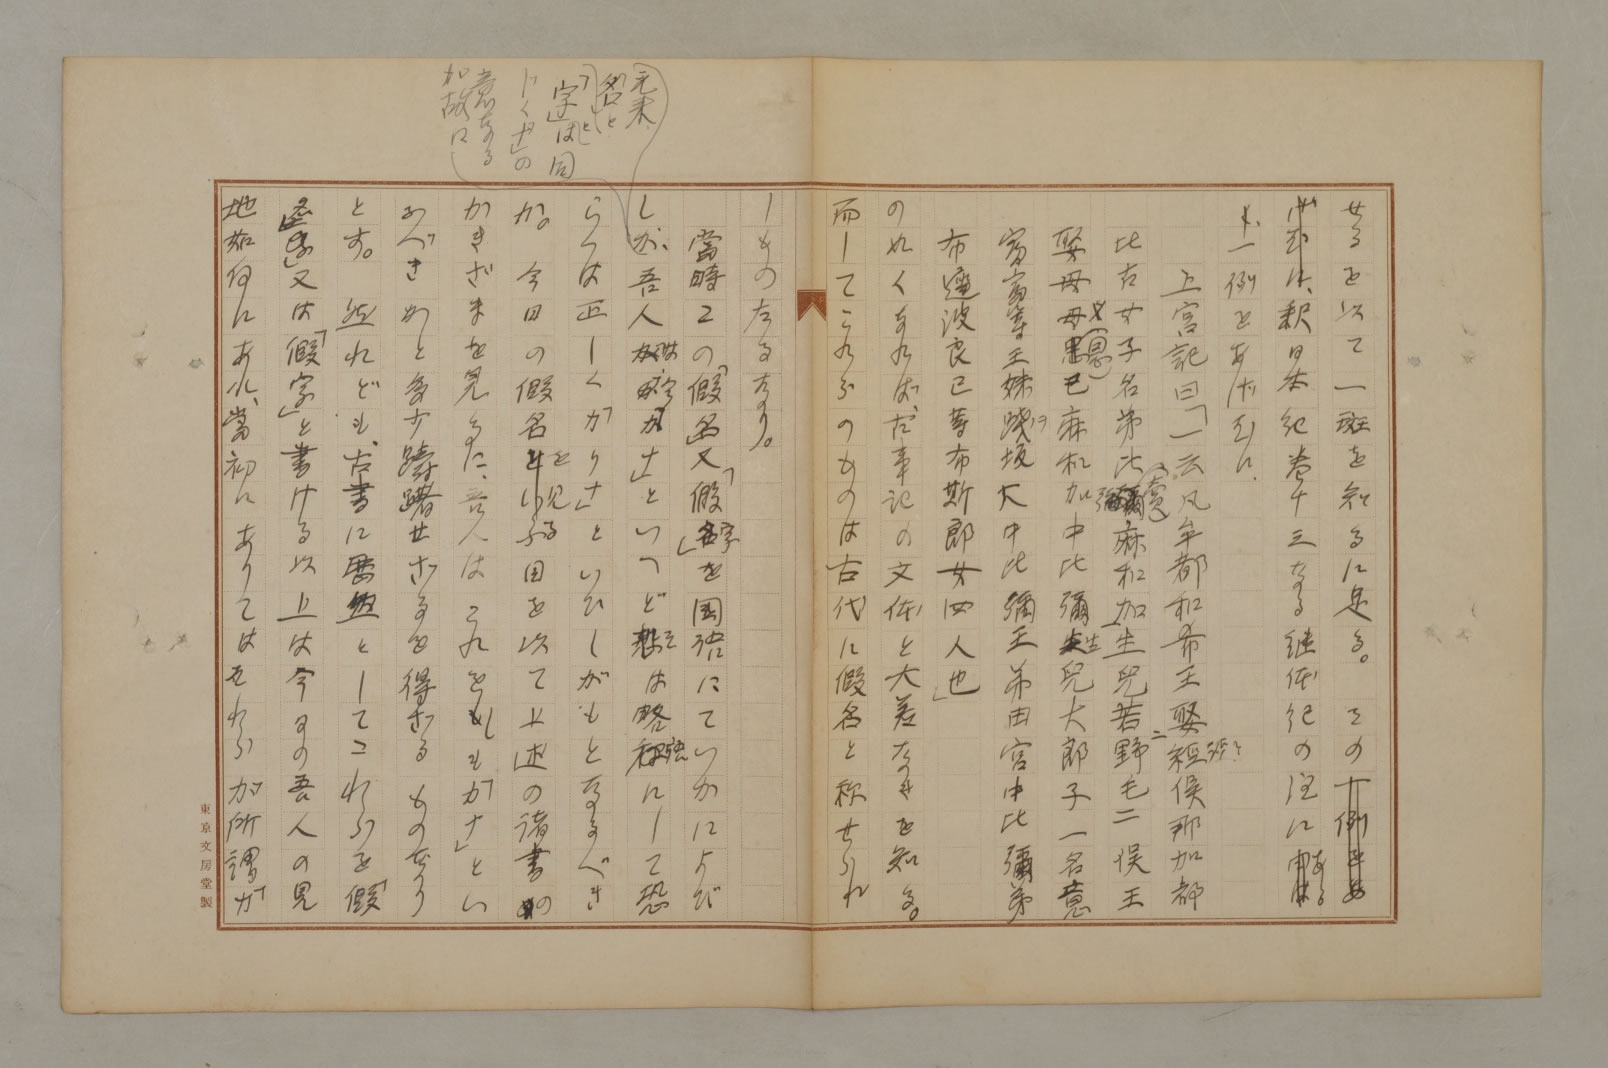 せるを以て一斑を知るに足る。その一例をあ
ぐれば、釈日本紀巻十三なる継体紀の注にある
は一例をあげむに、
上宮記曰「一云凡牟都和希王娶経俣那加都
比古女子名弟比弥麻和加生児若野毛二俣王
娶母母思已麻和加中比彌生児大郎子一名意
富富等王妹踐坂大中比彌王弟田宮中比彌弟
布遅波良已等布斯郎女四人也」
のれくあれば、古事記の文体と大差なきを知る。
而してこれらのものは古代に假名と称せられ
しものなるなり。
當時この「假名」又「假字」を国語にていかによび
しか、吾人は「かな」といへど、そは略称にして恐
らくは正しく「かりな」といひしがもとなるべき
か。今日の假名を見る目を以て上述の諸書の
かきざまを見るに、吾人はこれをしも「かな」とい
ふべきかと多少躊躇せざるを得ざるものあり
とす。然れども、古書に歴然としてこれらを「假
名」又は「假字」と書ける以上は今日の吾人の見
地如何にあれ、當初にありてはそれらが所謂「か
元来
「名」と
「字」とは同
じく「ナ」の
意なる
が故に
東京文房堂製